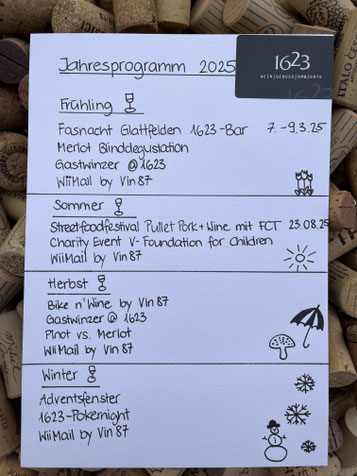 Jahresprogramm 2025
1623
WEIN|GENUSS|AMBIENTE
Frühling
Fasnacht Glattfelden 1623-Bar 7.-9.3.25
Merlot Blinddegustation
Gastwinzer @1623
WiiMail by Vin87
Sommer
Streetfoodfestival Pullet Pork+Wine mit FCT 23.08.25
Charity Event V-Foundation for Children
WiiMail by Vin87
Herbst
Bike n'Wine by Vin87
Gastwinzer@ 1623
Pinot vs. Merlot
WiiMail by Vin87
Winter
Adventsfenster
1623-Pokernight
WiiMail by Vin87